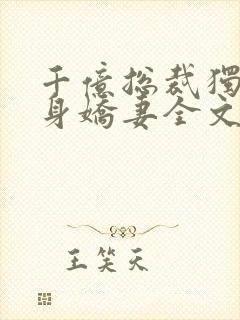 千億總裁獨
身嬌妻全文
王笑天